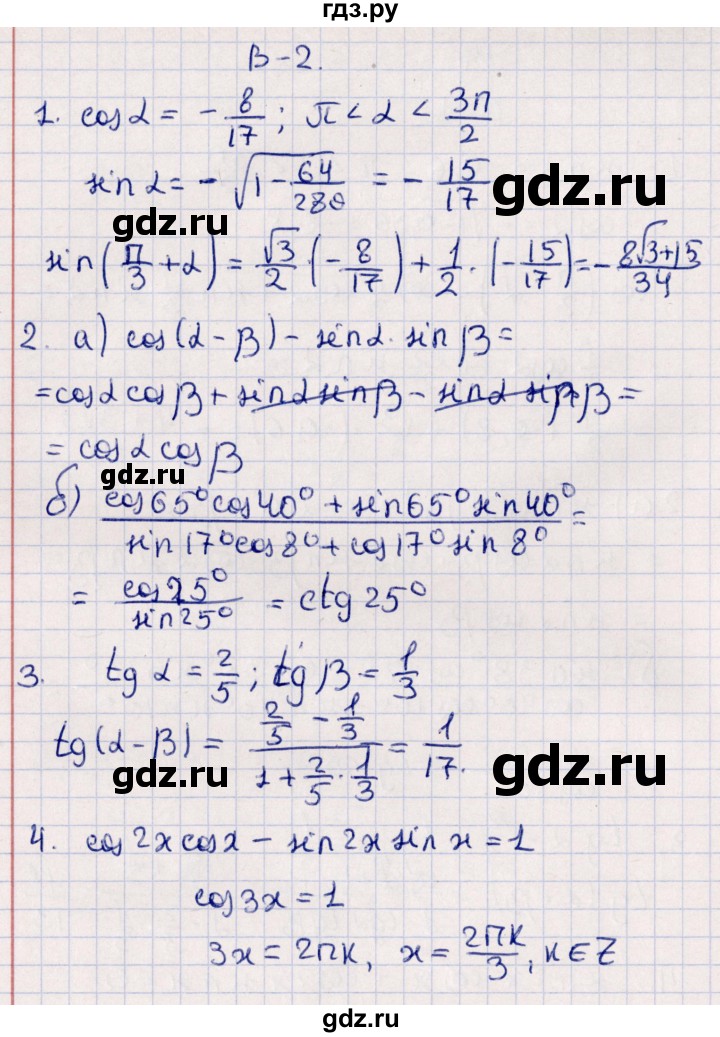 гдз.ру
В-2.
1. cos α = - 8/17 ; π < α < 3π/2
sin α = - √(1 - 64/289) = - 15/17
gdz.ru
gdz.ru
sin(π/3 + α) = √3/2 · (- 8/17) + 1/2 · (- 15/17) = - (8√3+15)/34
2. а) cos(α - β) - sin α · sin β =
= cos α cos β + sin α sin β - sin α sin β =
= cos α cos β
gdz.ru
gdz.ru
б) (cos 65° cos 40° + sin 65° sin 40°)/(sin 17° cos 8° + cos 17° sin 8°) =
= cos 25°/sin 25° = ctg 25°
gdz.ru
3. tg α = 2/5 ; tg β = 1/3
tg(α - β) = (2/5 - 1/3)/(1 + 2/5 · 1/3) = 1/17.
gdz.ru
gdz.ru
4. cos 2x cos x - sin 2x sin x = 1
cos 3x = 1
3x = 2πk, x = 2πk/3 ; k ∈ Z
gdz.ru
gdz.ru